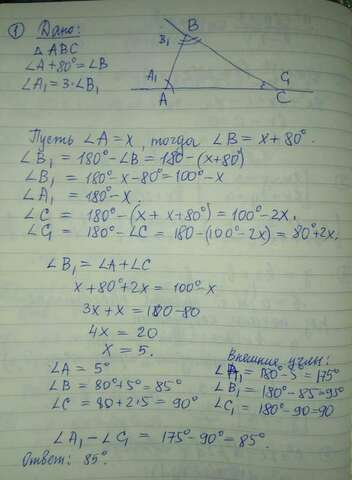 ① Дано:
△ ABC
∠A+80°=∠B
∠A₁=3·∠B₁
B
B₁
A₁
A
C₁
C
Пусть ∠A=x, тогда ∠B=x+80°.
∠B₁ = 180°-∠B = 180-(x+80°)
∠B₁ = 180°-x-80°=100°-x
∠A₁ = 180°-x.
∠C = 180°-(x+x+80°)=100°-2x.
∠C₁ = 180°-∠C = 180-(100°-2x) = 80°+2x.
∠B₁ = ∠A+∠C
x+80°+2x=100°-x
3x+x = 100-80
4x = 20
x = 5.
∠A = 5°
∠B = 80°+5°=85°
∠C = 80+2·5=90°
Внешние углы:
∠A₁=180°-5=175°
∠B₁=180°-85=95°
∠C₁=180°-90=90
∠A₁-∠C₁ = 175°-90°=85°.
Ответ: 85°.